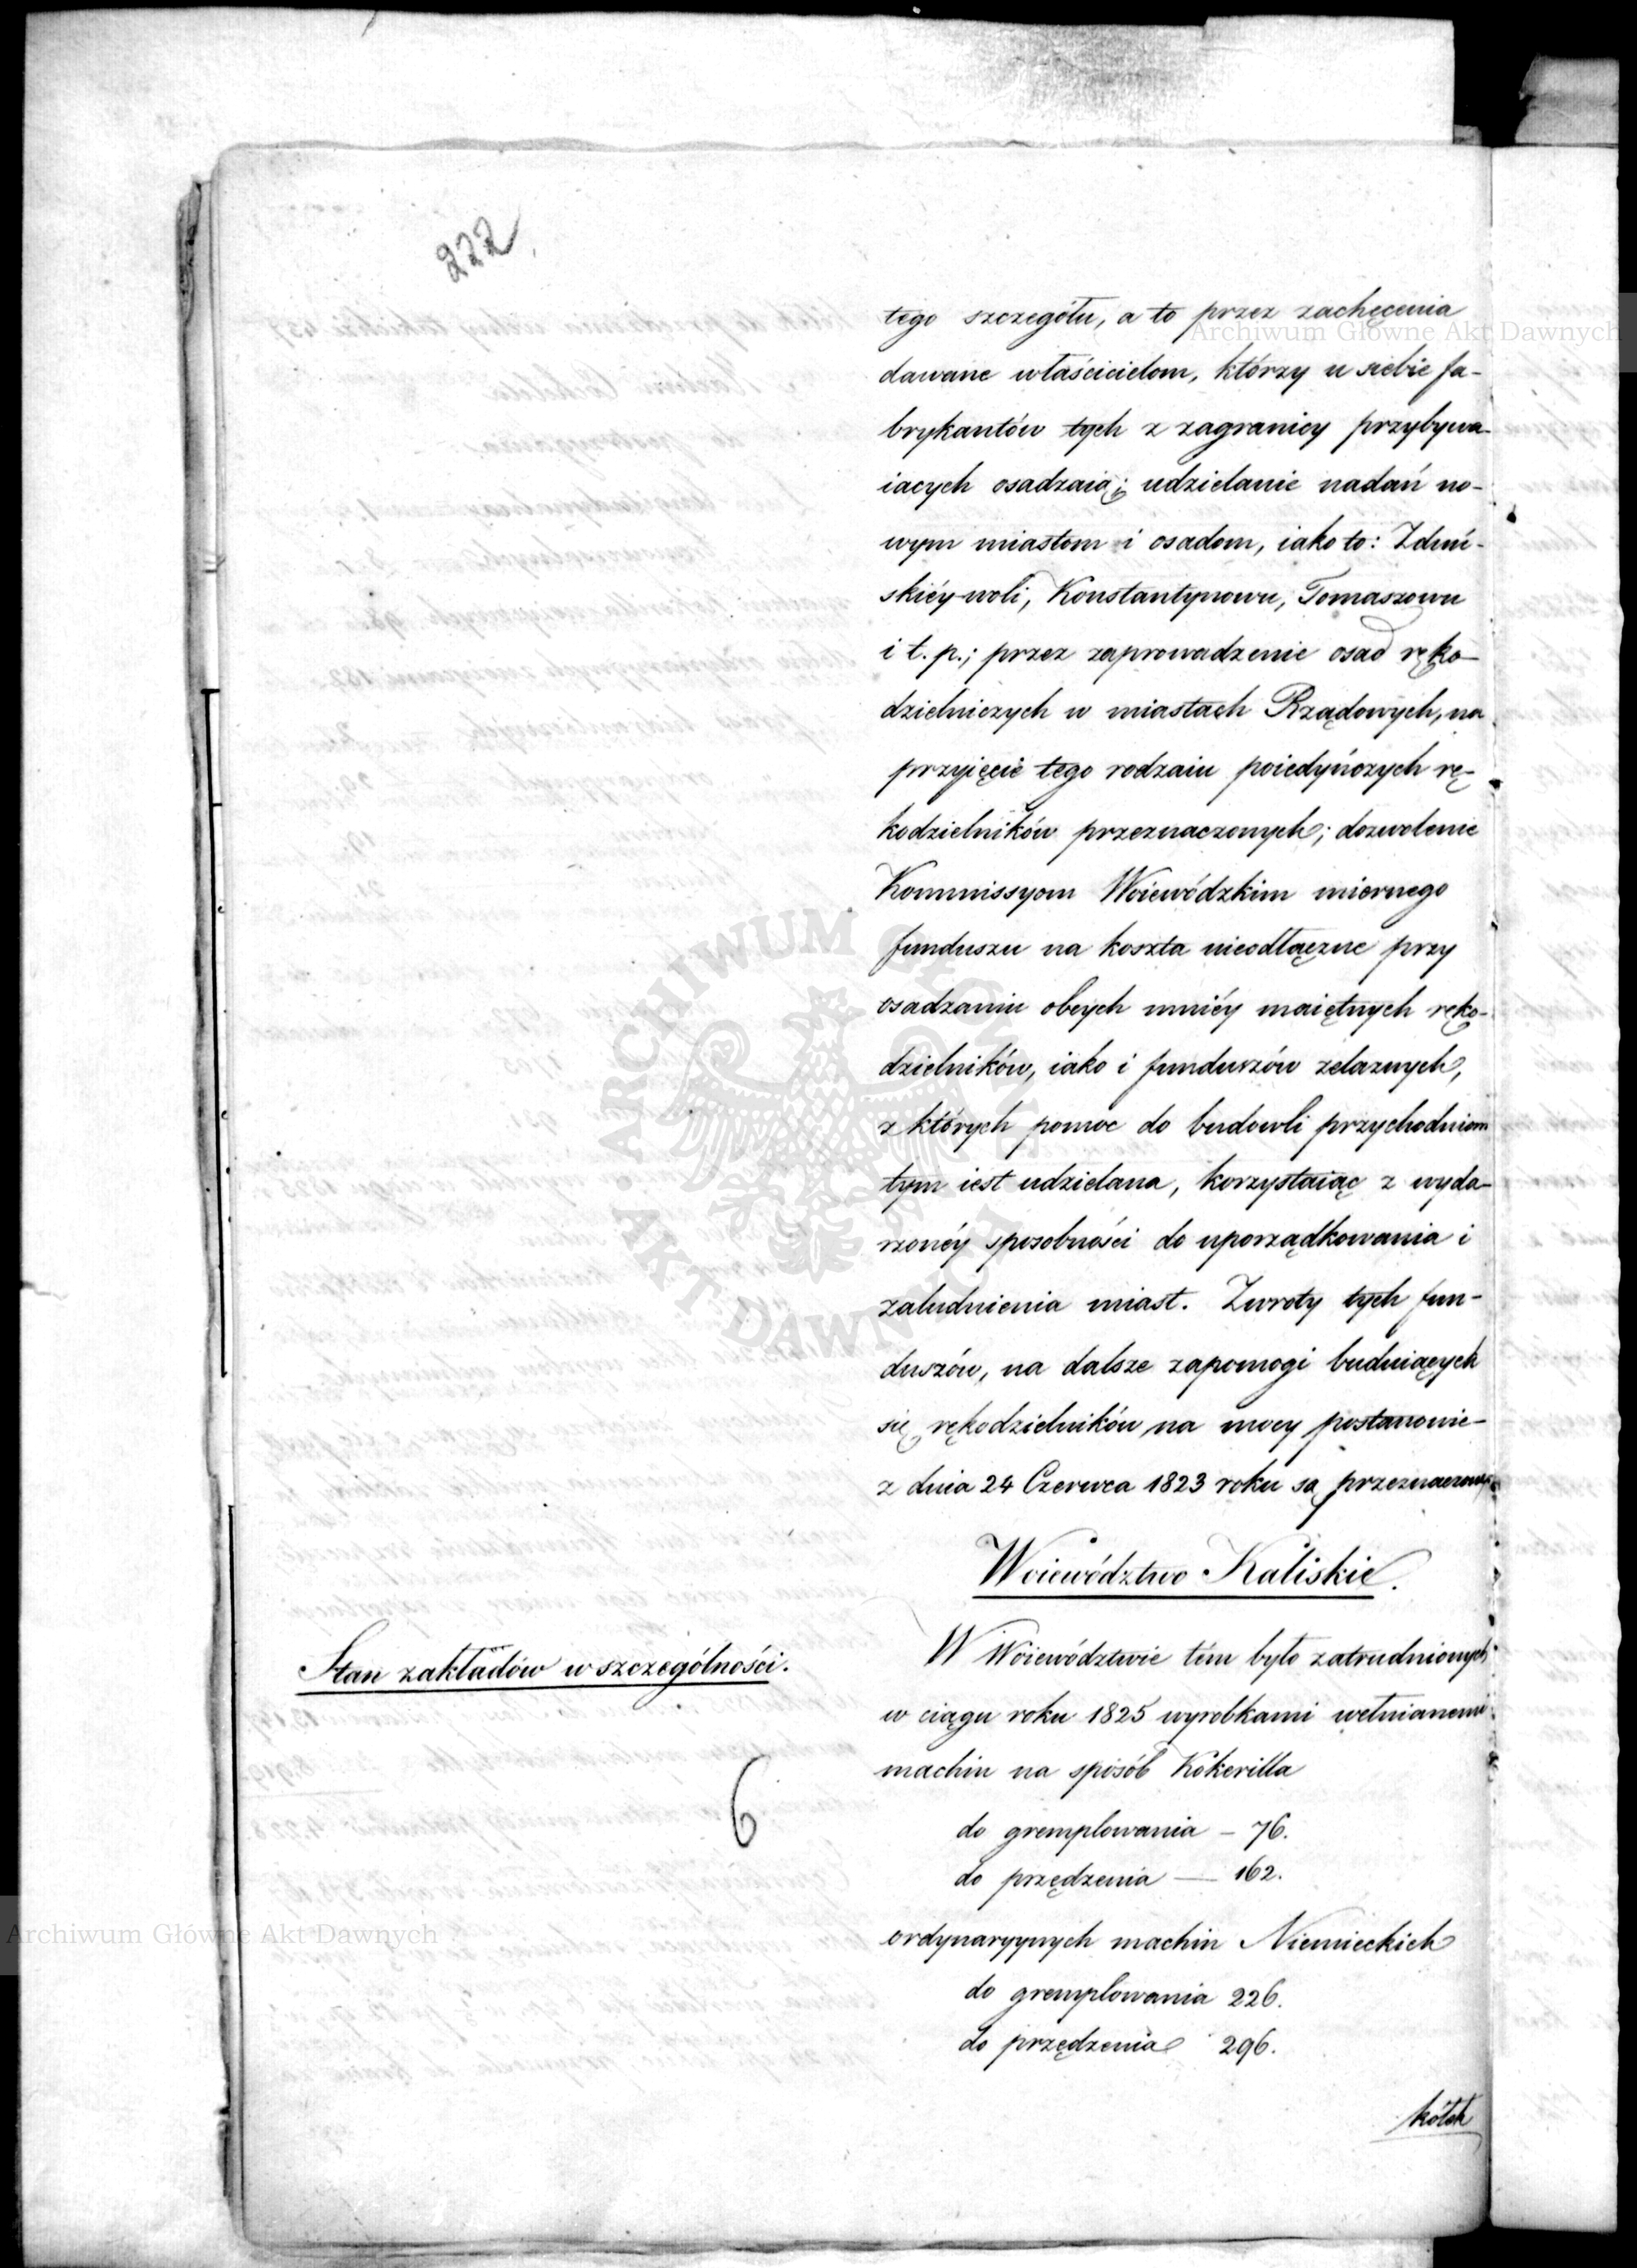 222
tego szczegółu, a to przez zachęcenia
dawane właścicielom, którzy u siebie fa-
brykantów tych z zagranicy przybywa-
iących osadzaią; udzielanie nadań no-
wym miastom i osadom, iako to: Zduń-
skiéy-woli, Konstantynowu, Tomaszowu
i t. p.; przez zaprowadzenie osad ręko-
dzielniczych w miastach Rządowych, na
przyięcie tego rodzaiu poiedyńczych rę-
kodzielników przeznaczonych; dozwolenie
Kommissyom Woiewódzkim miernego
funduszu na koszta nieodłączne przy
osadzaniu obcych mniéy maiętnych ręko-
dzielników, iako i funduszów żelaznych,
z których pomoc do budowli przychodniom
tym iest udzielana, korzystaiąc z wyda-
rzonéy sposobności do uporządkowania i
zaludnienia miast. Zwroty tych fun-
duszów, na dalsze zapomogi buduiących
się rękodzielników na mocy postanowie-
z dnia 24 Czerwca 1823 roku są przeznaczone
Woiewództwo Kaliskie.
Stan zakładów w szczególności.
W Woiewództwie tém było zatrudnionych
w ciągu roku 1825 wyrobkami wełnianemi
machin na sposób Kokerilla
6
do gremplowania – 76.
do przędzenia — 162.
ordynaryynych machin Niemieckich
do gremplowania 226.
do przędzenia 296.
kółek
Archiwum Główne Akt Dawnych
Archiwum Główne Akt Dawnych
ARCHIWUM GŁÓWNE AKT DAWNYCH